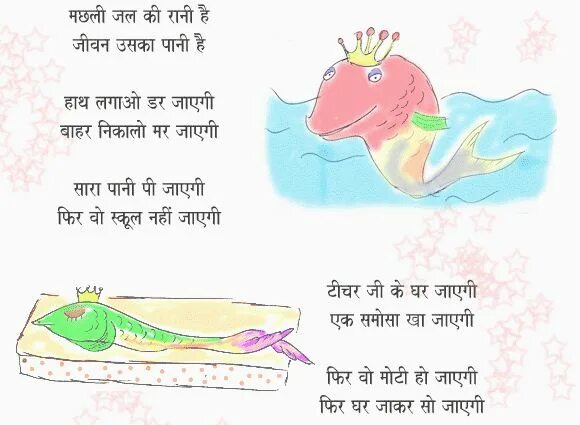 मछली जल की रानी है
जीवन उसका पानी है
हाथ लगाओ डर जाएगी
बाहर निकालो मर जाएगी
सारा पानी पी जाएगी
फिर वो स्कूल नहीं जाएगी
टीचर जी के घर जाएगी
एक समोसा खा जाएगी
फिर वो मोटी हो जाएगी
फिर घर जाकर सो जाएगी